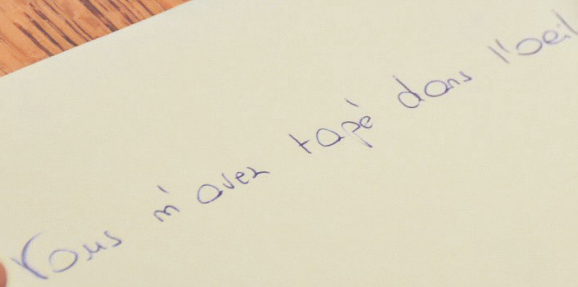 Vous m'avez tapé dans l'oeil